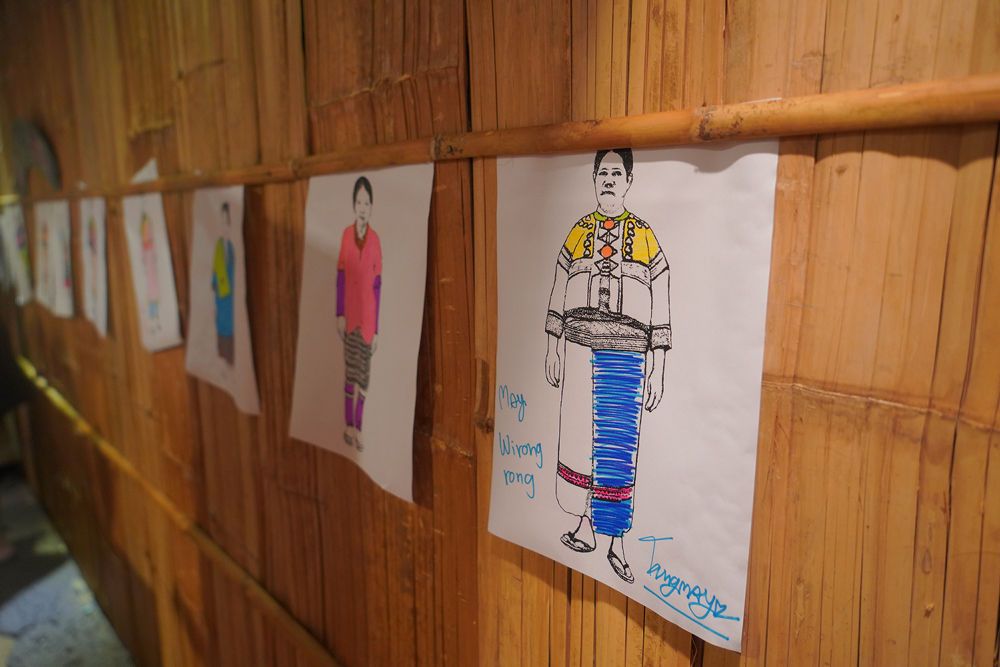 May
Wirong
rong
Tangmay